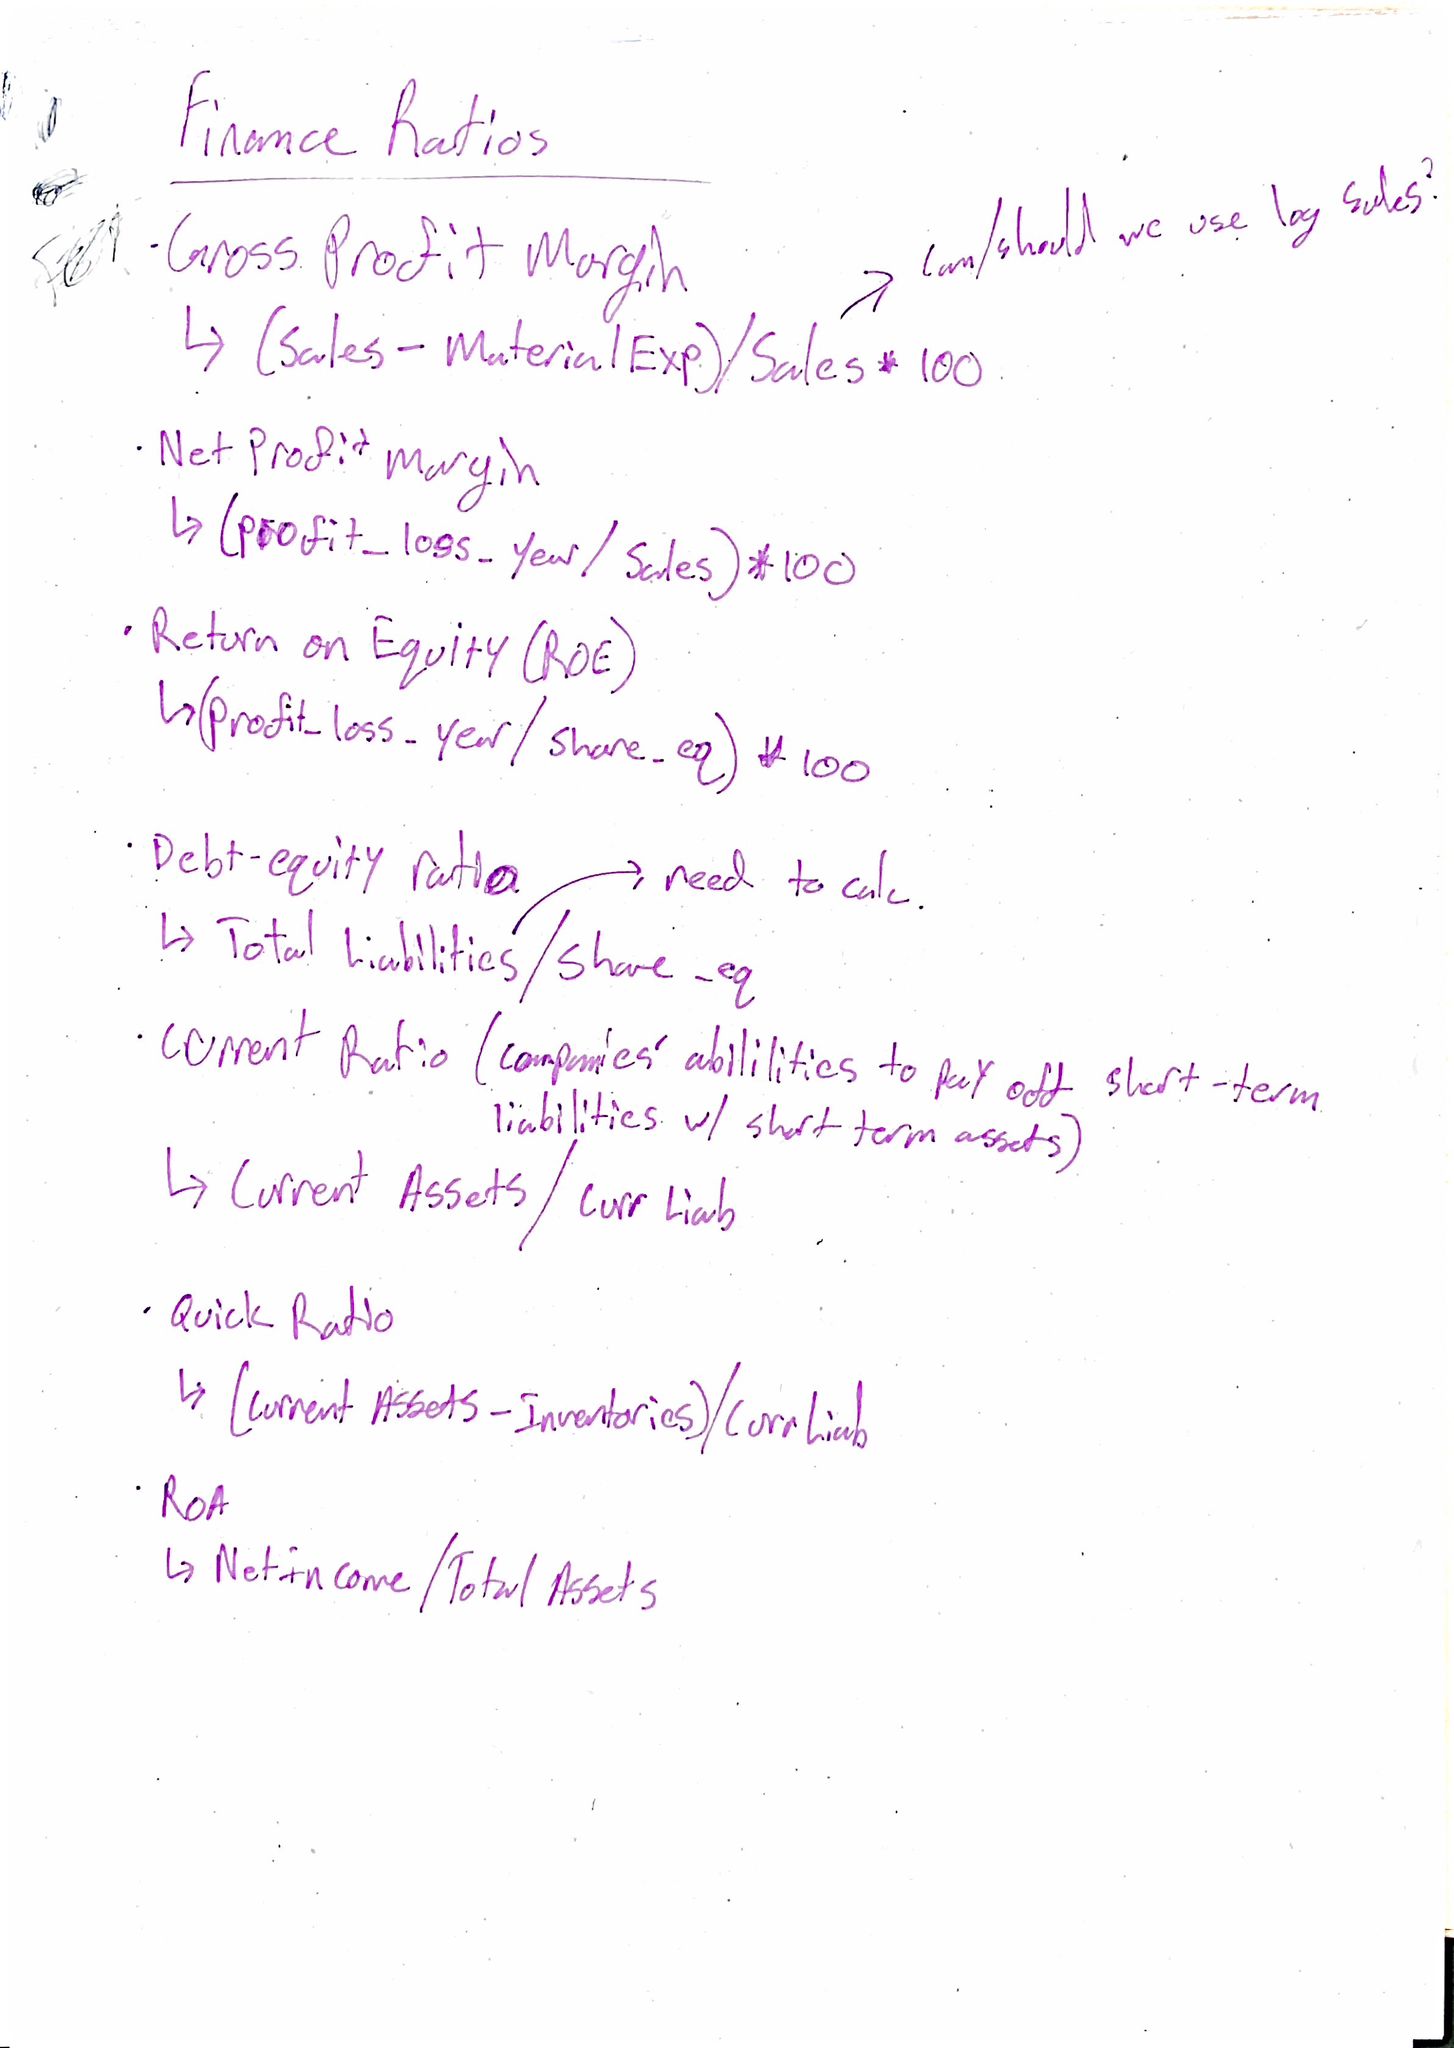 Finance Ratios
can/should we use log sales?
· Gross Profit Margin
↳ (Sales - MaterialExp)/Sales * 100
· Net Profit margin
↳ (profit_loss_year/Sales) * 100
· Return on Equity (ROE)
↳ (profit_loss_year/share_eq) * 100
· Debt-equity ratio
→ need to calc.
↳ Total Liabilities/share_eq
· Current Ratio (companies' abililities to pay off short-term
liabilities w/ short term assets)
↳ Current Assets/Curr Liab
· Quick Ratio
↳ (Current Assets - Inventories)/Curr Liab
· ROA
↳ Net income/Total Assets